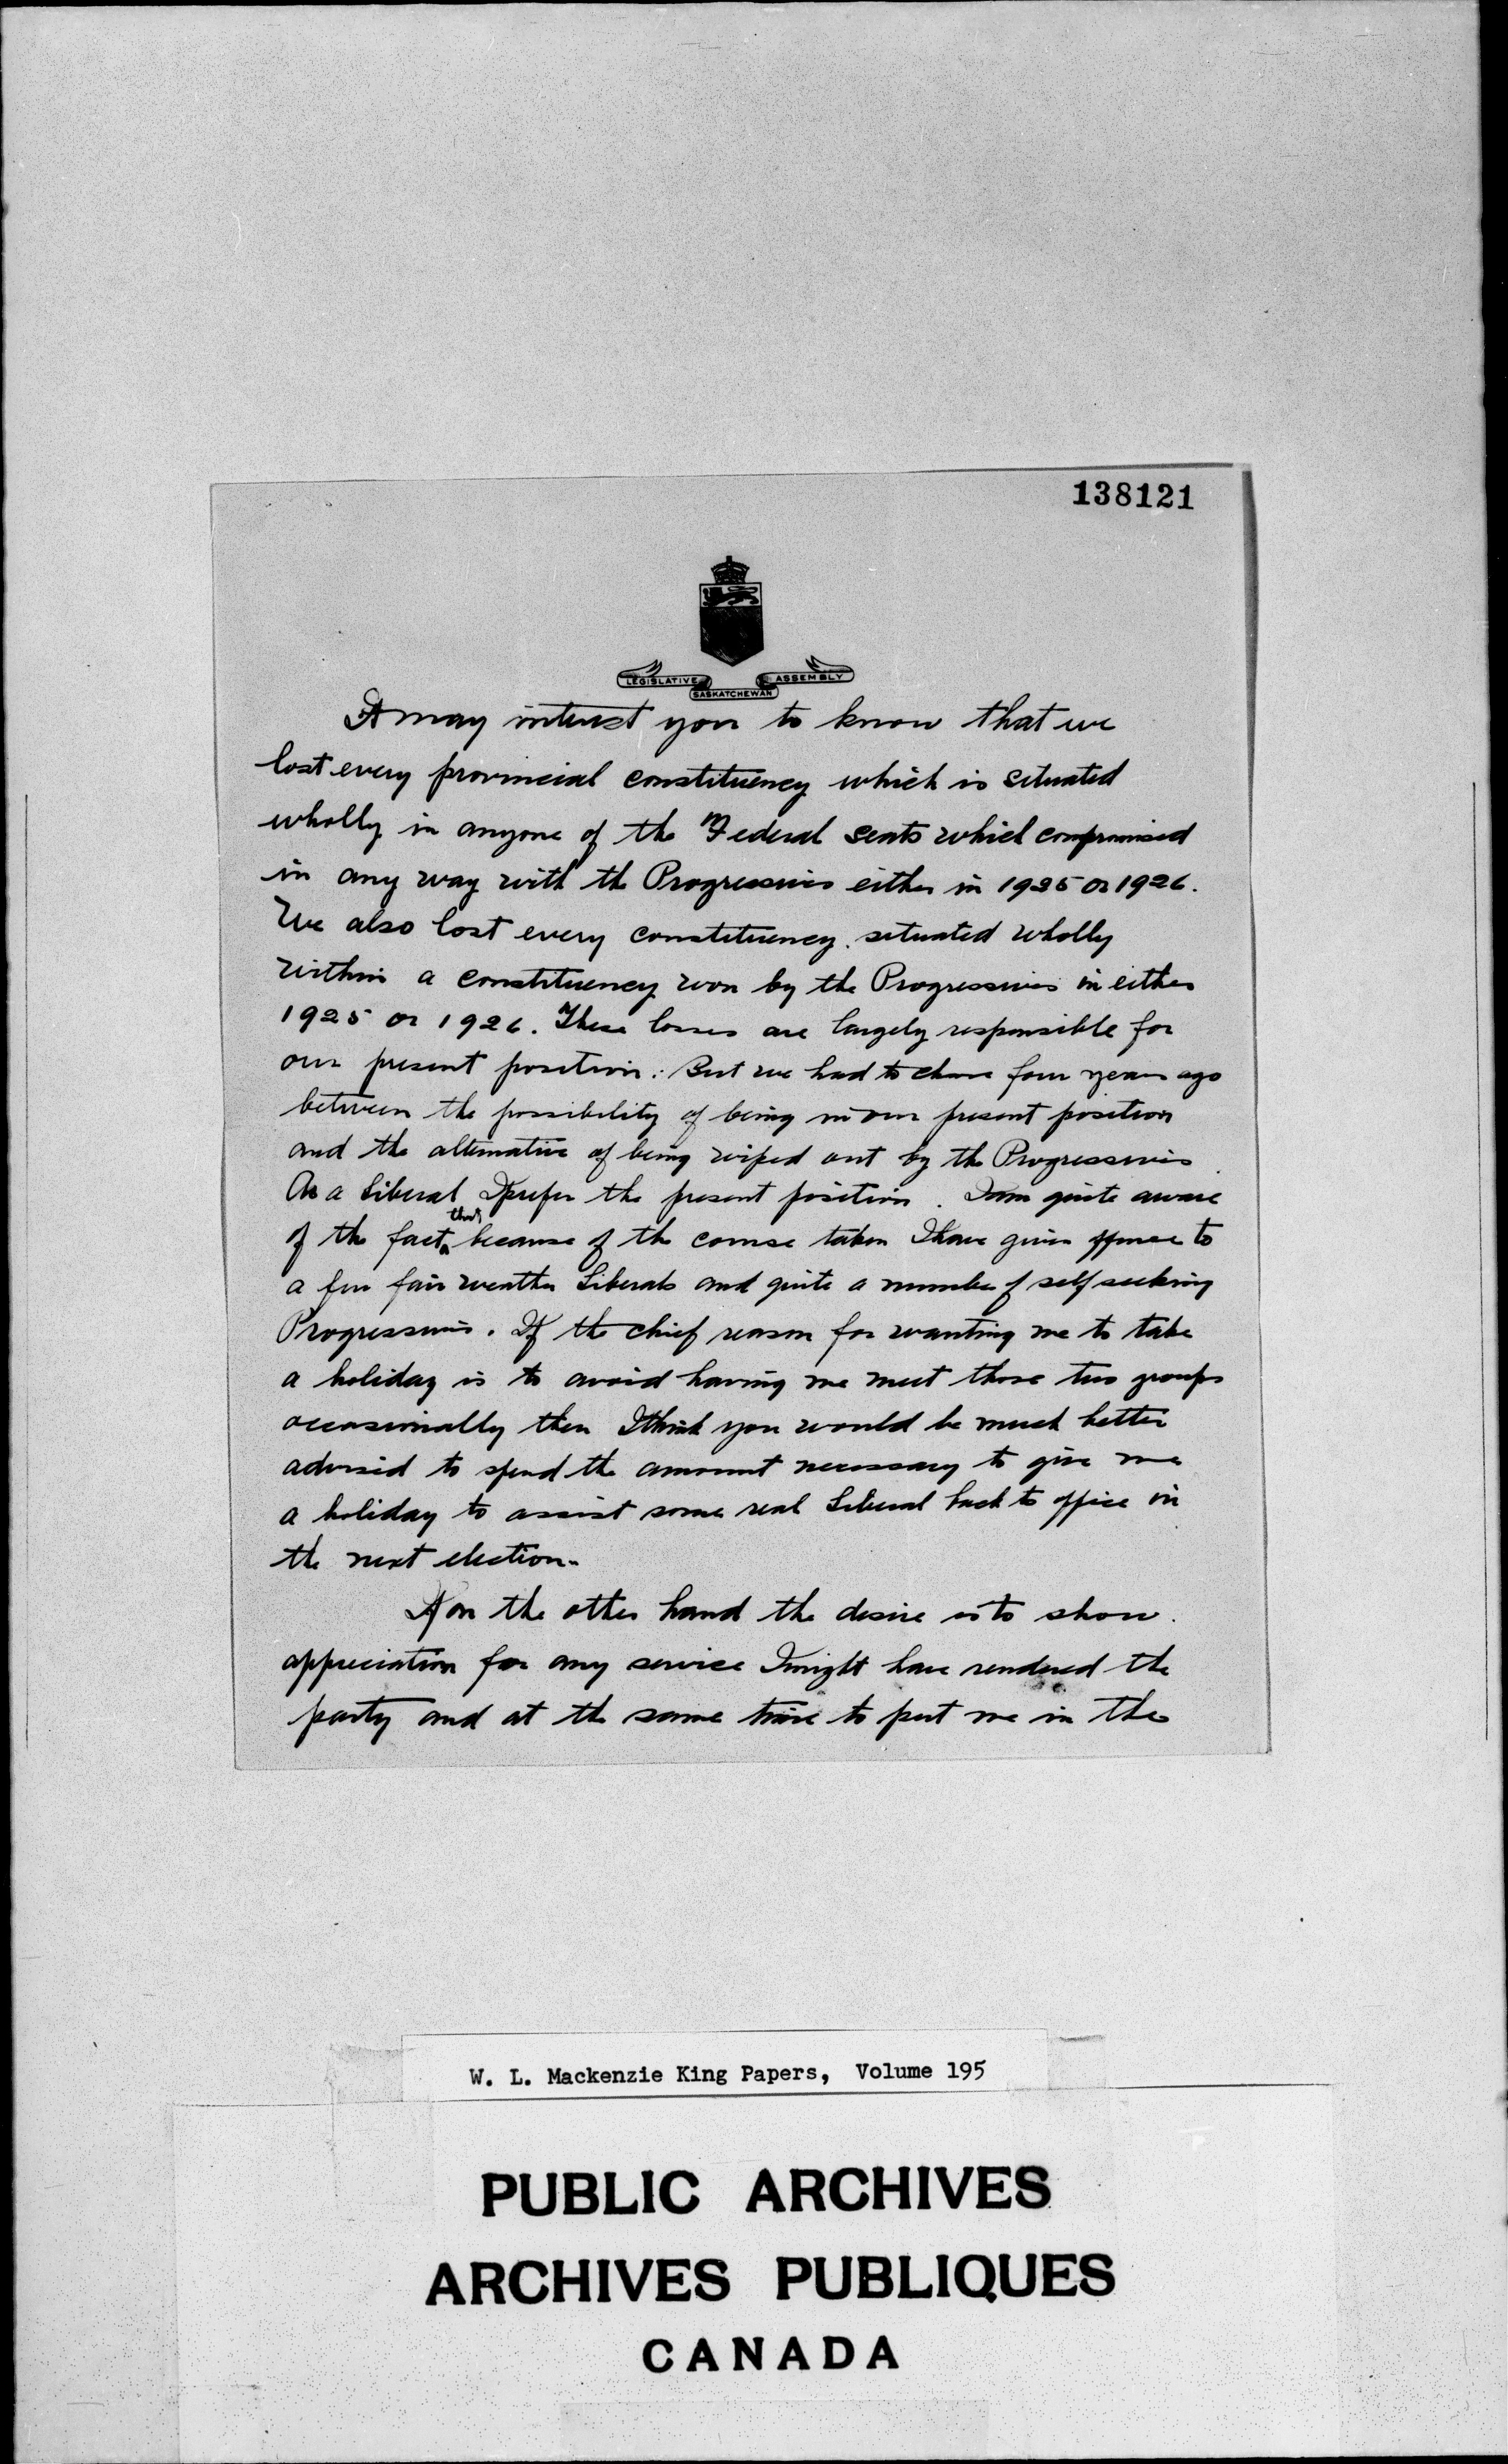 138121
LEGISLATIVE ASSEMBLY
SASKATCHEWAN
It may interest you to know that we
lost every provincial constituency which is situated
wholly in anyone of the Federal seats which compromised
in any way with the Progressives either in 1925 or 1926.
We also lost every constituency situated wholly
within a constituency won by the Progressives in either
1925 or 1926. These losses are largely responsible for
our present position. But we had to chose four years ago
between the possibility of being in our present position
and the alternative of being wiped out by the Progressives.
As a Liberal I prefer the present position. I am quite aware
of the fact that because of the course taken I have given offence to
a few fair weather Liberals and quite a number of self seeking
Progressives. If the chief reason for wanting me to take
a holiday is to avoid having me meet those two groups
occasionally then I think you would be much better
advised to spend the amount necessary to give me
a holiday to assist some real Liberal back to office in
the next election.
If on the other hand the desire is to show
appreciation for any service I might have rendered the
party and at the same time to put me in the
W. L. Mackenzie King Papers, Volume 195
PUBLIC ARCHIVES
ARCHIVES PUBLIQUES
CANADA